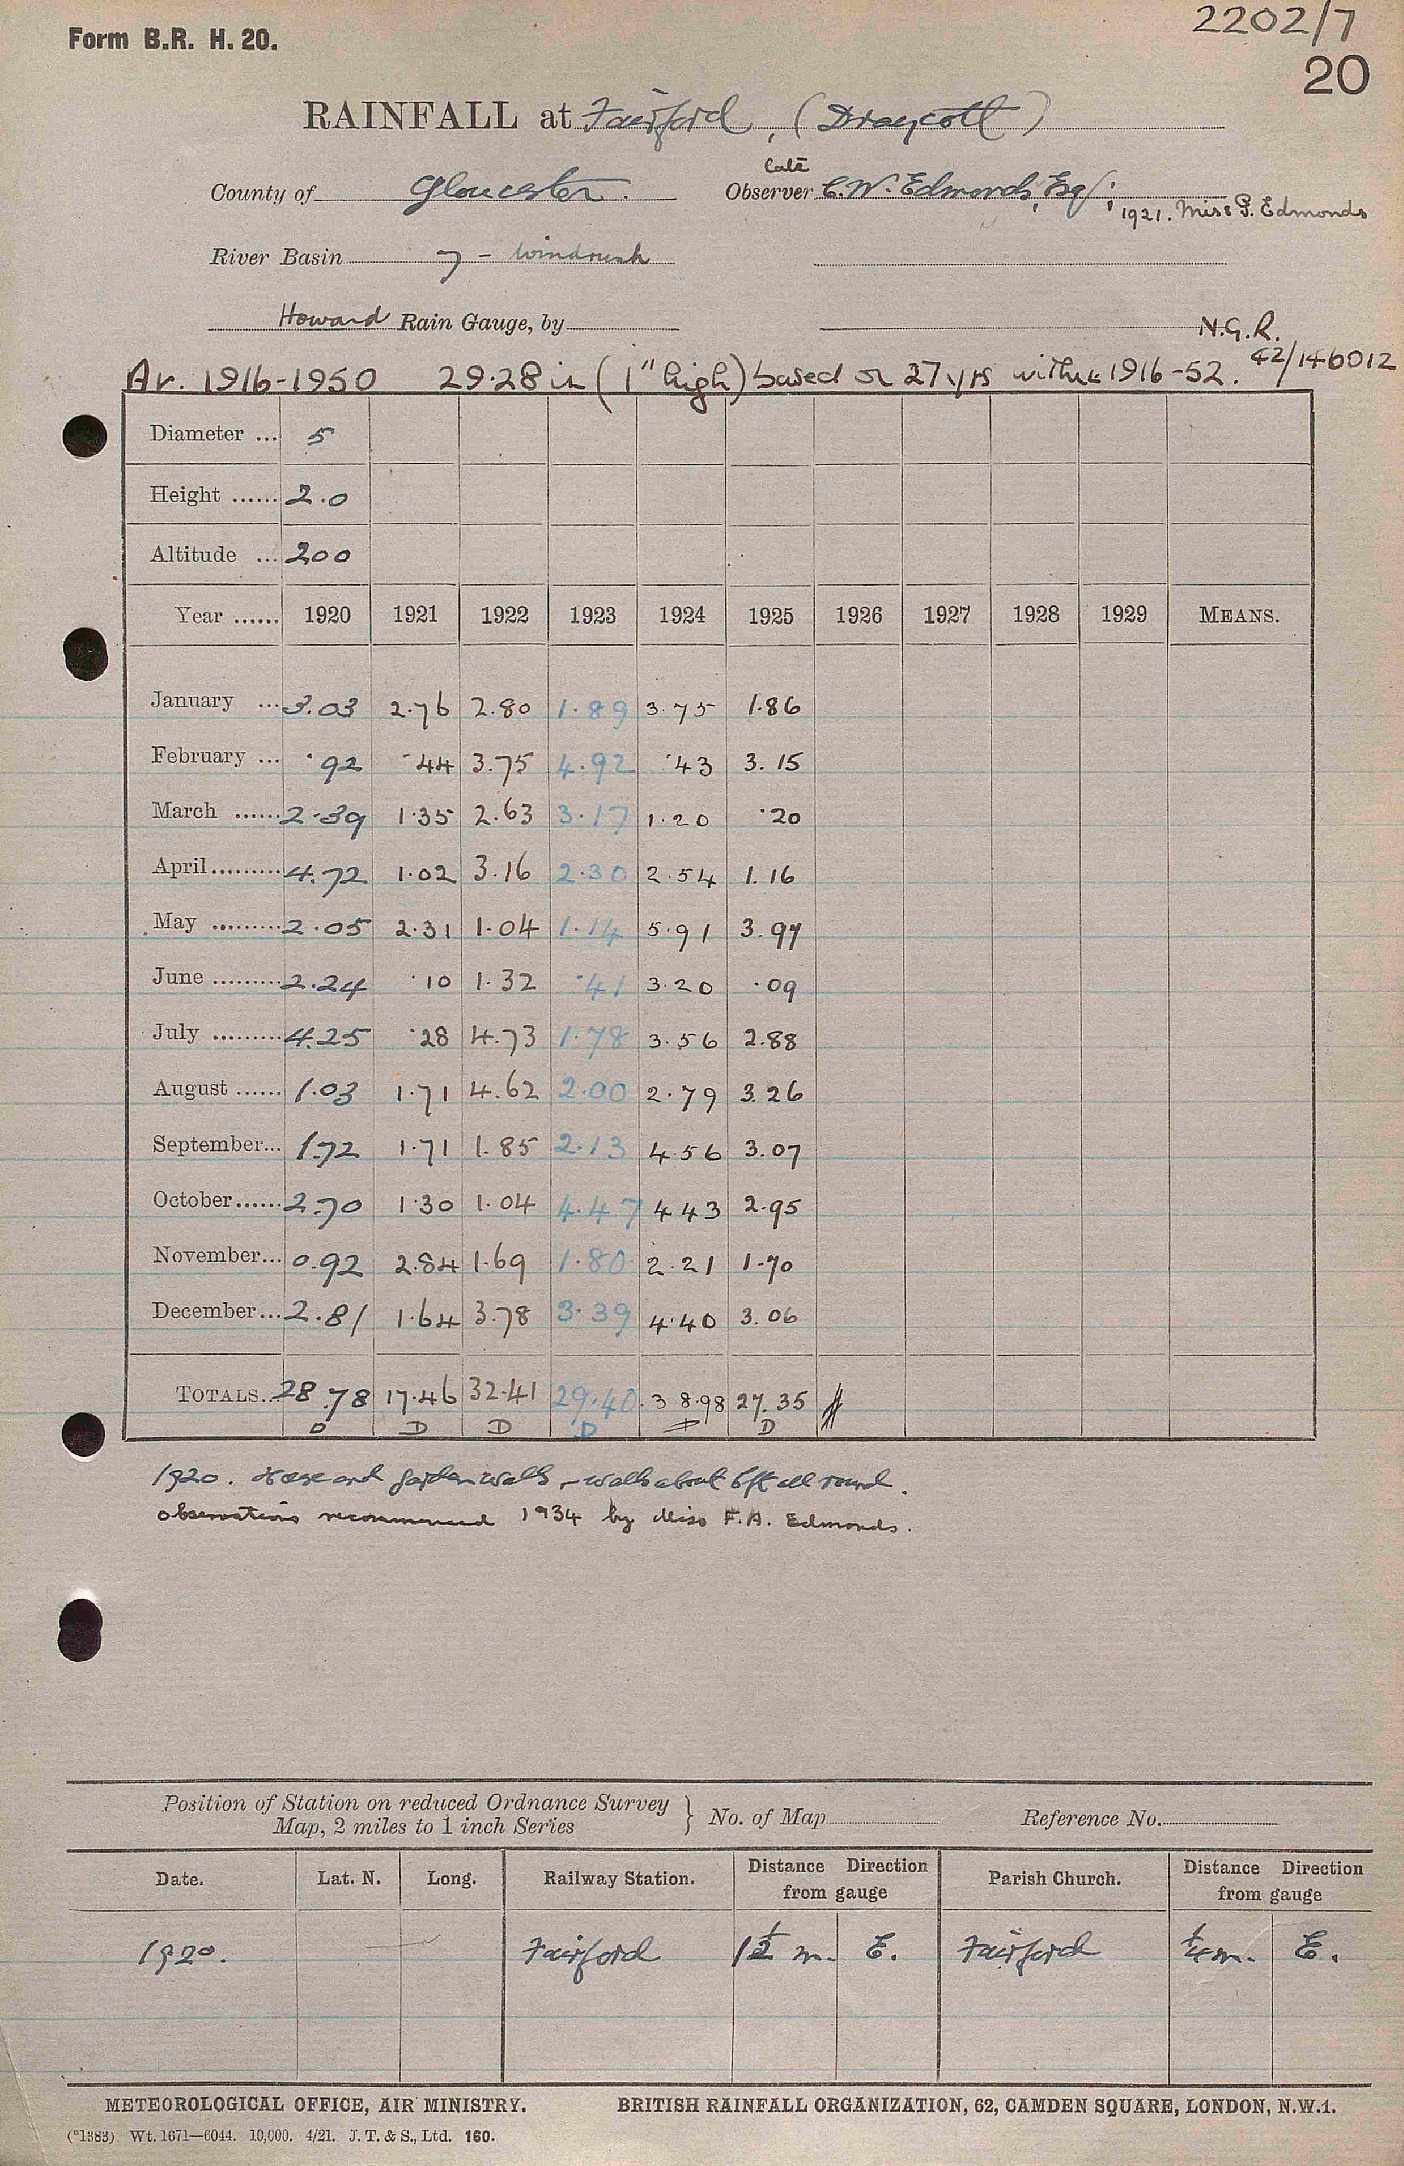 2202/7
Form B.R. H. 20.
20
RAINFALL at Fairford, (Draycott)
late
County of Gloucester. Observer C. W. Edmonds, Esq; 1921. Miss J. Edmonds
River Basin 7 - Windrush
Howard Rain Gauge, by
N.G.R.
Av. 1916-1950 29.28 in (1" high) based on 27 yrs within 1916-52. 42/146012
Diameter ... 5
Height ...... 2.0
Altitude ... 200
Year ...... 1920 1921 1922 1923 1924 1925 1926 1927 1928 1929 MEANS.
January ... 3.03 2.76 2.80 1.89 3.75 1.86
February ... .92 .44 3.75 4.92 .43 3.15
March ...... 2.39 1.35 2.63 3.17 1.20 .20
April......... 4.72 1.02 3.16 2.30 2.54 1.16
May ......... 2.05 2.31 1.04 1.14 5.91 3.97
June ......... 2.24 .10 1.32 .41 3.20 .09
July ......... 4.25 .28 4.73 1.78 3.56 2.88
August ...... 1.03 1.71 4.62 2.00 2.79 3.26
September... 1.72 1.71 1.85 2.13 4.56 3.07
October...... 2.70 1.30 1.04 4.47 4.43 2.95
November... 0.92 2.84 1.69 1.80 2.21 1.70
December... 2.81 1.64 3.78 3.39 4.40 3.06
TOTALS... 28.78 17.46 32.41 29.40 38.98 27.35
D D D D D D
1920. House and garden walls, - walls about 6ft all round.
Observations recommenced 1934 by Miss F.A. Edmonds.
Position of Station on reduced Ordnance Survey
Map, 2 miles to 1 inch Series } No. of Map Reference No.
Date. Lat. N. Long. Railway Station. Distance Direction from gauge Parish Church. Distance Direction from gauge
1920. Fairford 1½ m. E. Fairford ¼ m. E.
METEOROLOGICAL OFFICE, AIR MINISTRY. BRITISH RAINFALL ORGANIZATION, 62, CAMDEN SQUARE, LONDON, N.W.1.
(*1383) Wt. 1671—6044. 10,000. 4/21. J. T. & S., Ltd. 160.